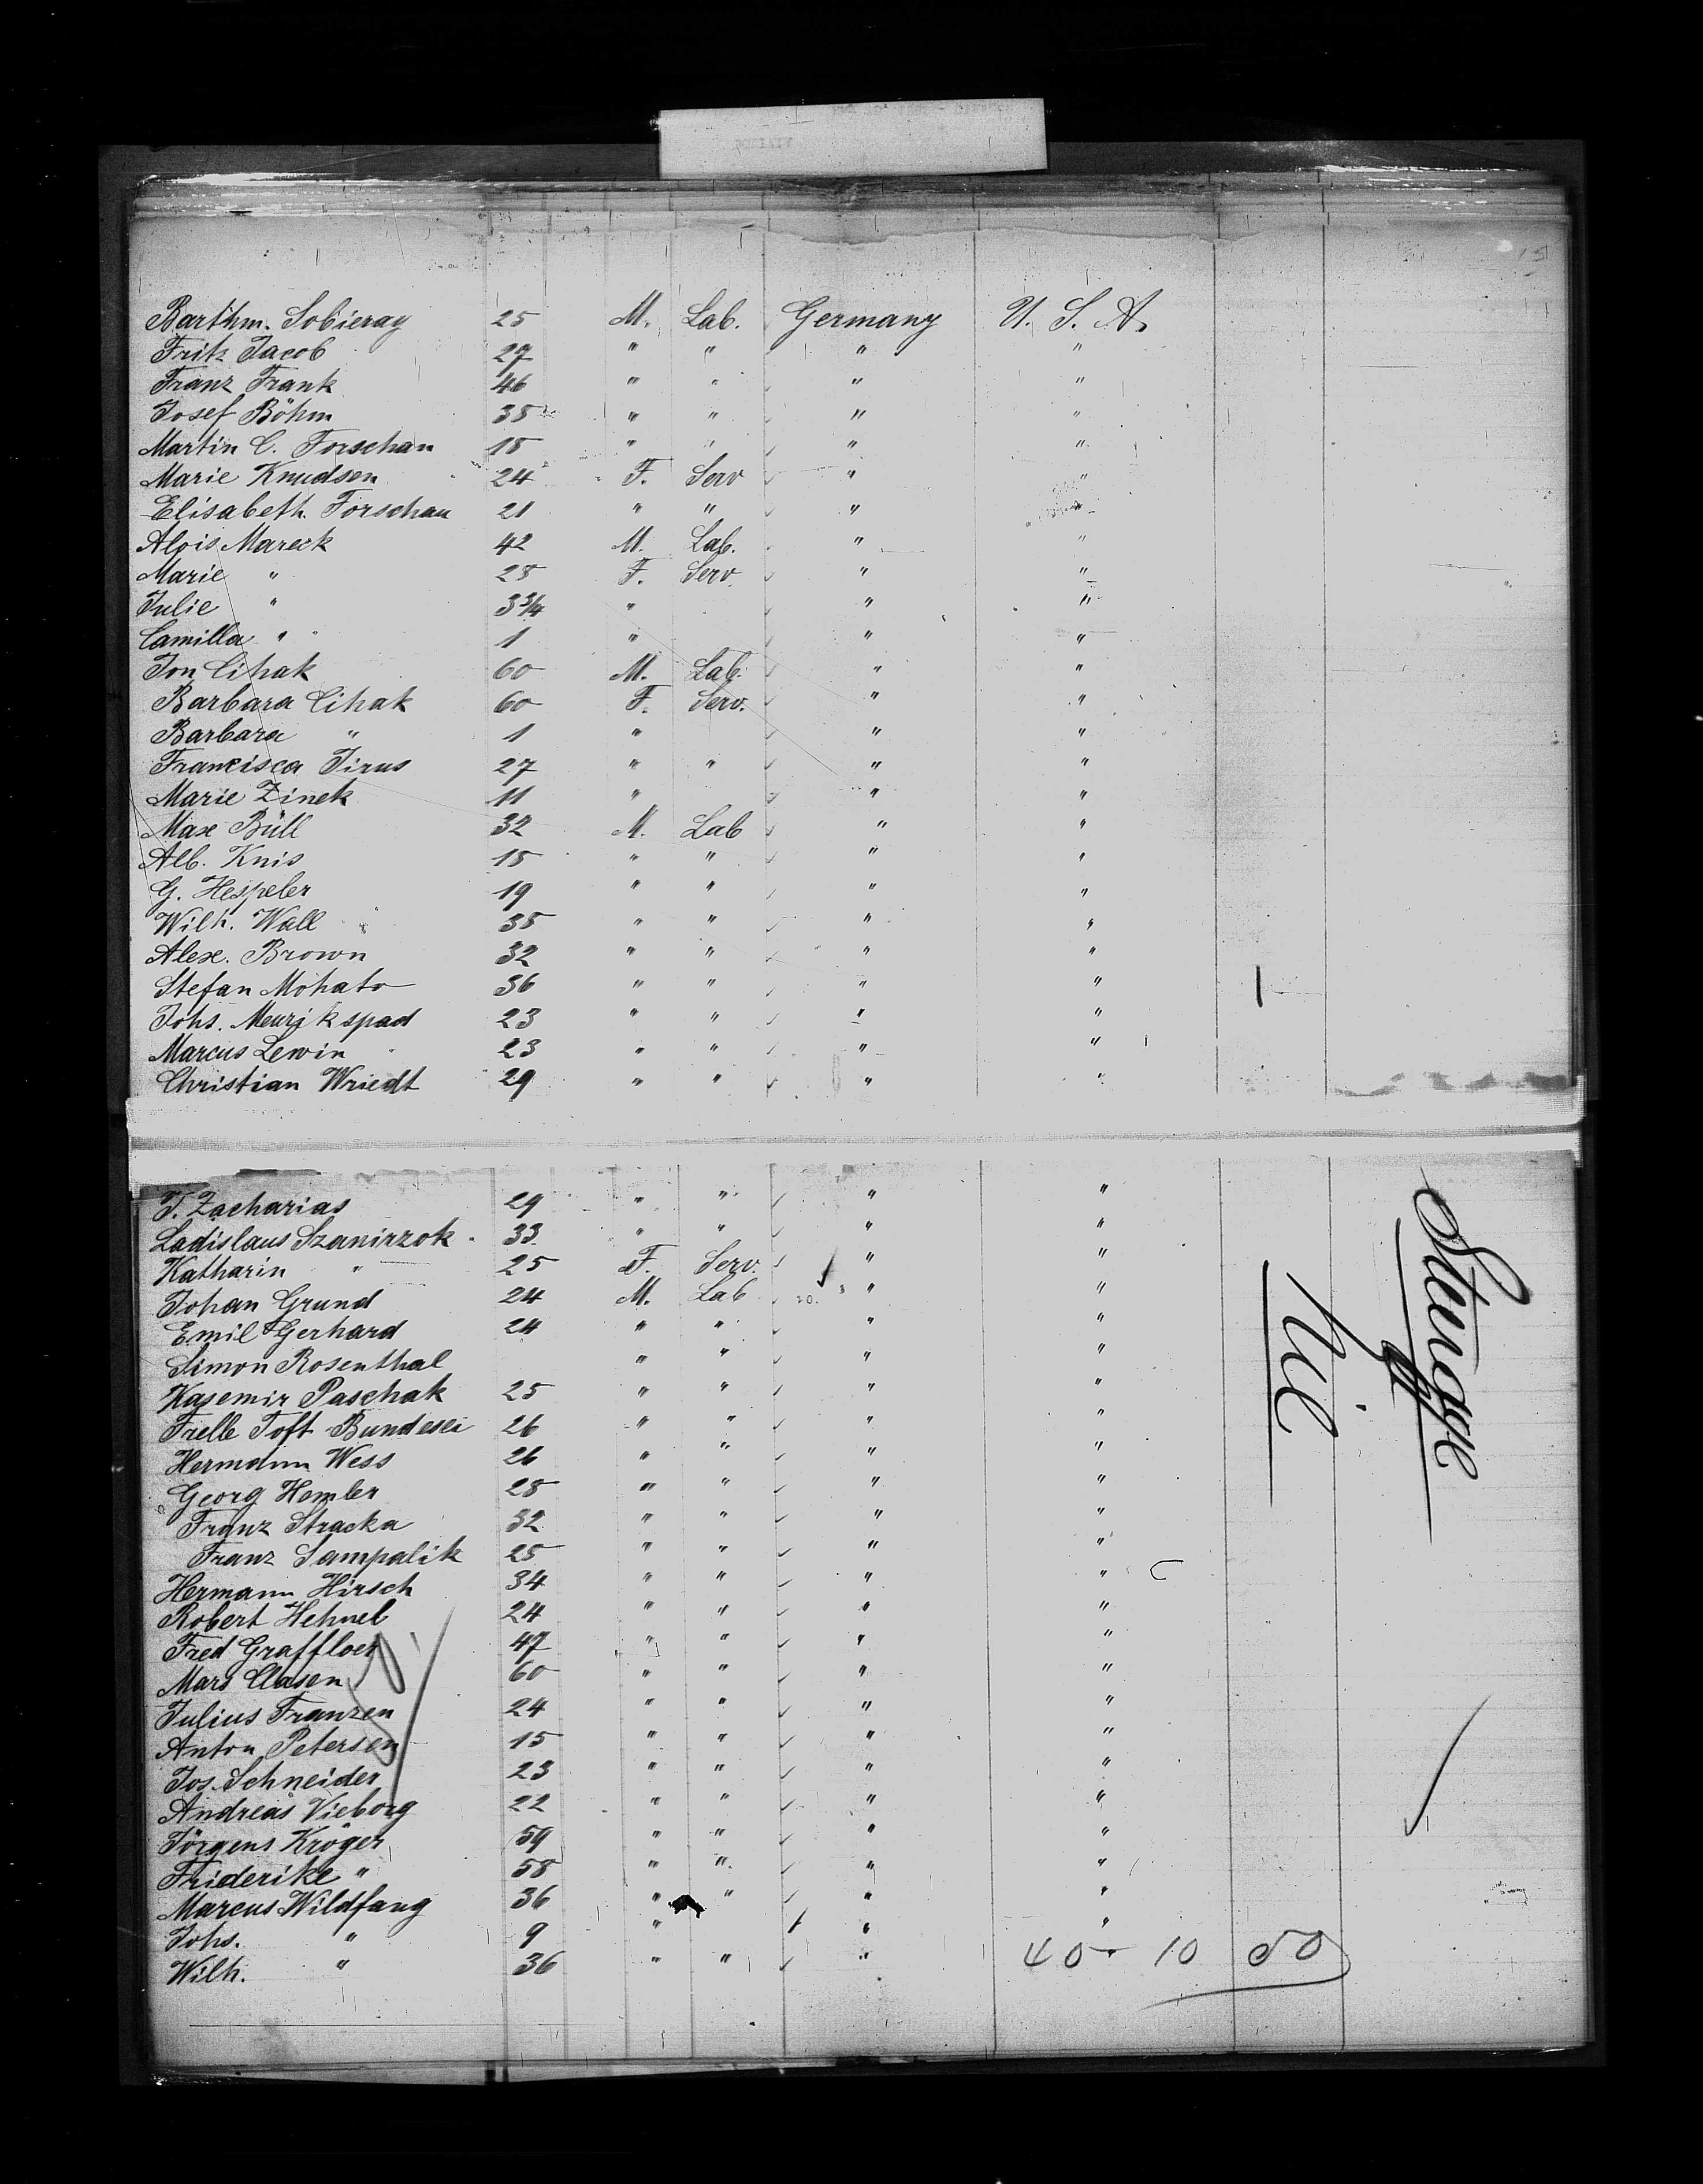 Barthm. Sobieray 25 M. Lab. Germany U. S. A.
Fritz Jacob 27 " " " "
Franz Frank 46 " " " "
Josef Böhm 35 " " " "
Martin C. Forschan 18 " " " "
Marie Knudsen 24 F. Serv " "
Elisabeth Forschau 21 " " " "
Alois Mareck 42 M. Lab. " "
Marie " 28 F. Serv. " "
Julie " 3 3/4 " " "
Camilla " 1 " " "
Jon Cihak 60 M. Lab. " "
Barbara Cihak 60 F. Serv. " "
Barbara " 1 " " "
Francisca Jirus 27 " " " "
Marie Zinek 11 " " "
Max Büll 32 M. Lab " "
Alb. Knis 18 " " " "
G. Hespeler 19 " " " "
Wilh. Wall 35 " " " "
Alex. Brown 32 " " " "
Stefan Mohato 36 " " " "
Johs. Meurikspad 23 " " " "
Marcus Lewin 23 " " " "
Christian Wriedt 29 " " " "
T. Zacharias 29 " " " "
Ladislaus Szanirzok 33 " " " "
Katharin " 25 F. Serv. " "
Johan Grund 24 M. Lab " "
Emil Gerhard 24 " " " "
Simon Rosenthal " " " "
Kasemir Paschak 25 " " " "
Toft 26 " " " "
Hermann Wess 26 " " " "
Georg Hemler 28 " " " "
Franz Stracka 32 " " " "
Franz Sampalik 25 " " " "
Hermann Hirsch 34 " " " "
Robert Hehnel 24 " " " "
Fred Graffloer 47 " " " "
Mars Clasen 60 " " " "
Julius Franzen 24 " " " "
Anton Petersen 15 " " " "
Jos. Schneider 23 " " " "
Andreas Vieborg 22 " " " "
Jörgens Kröger 59 " " " "
Friderike " 58 " " " "
Marcus Wildfang 36 " " " "
Johs. " 9 " " "
Wilh. " 36 " " " 40 - 10 50